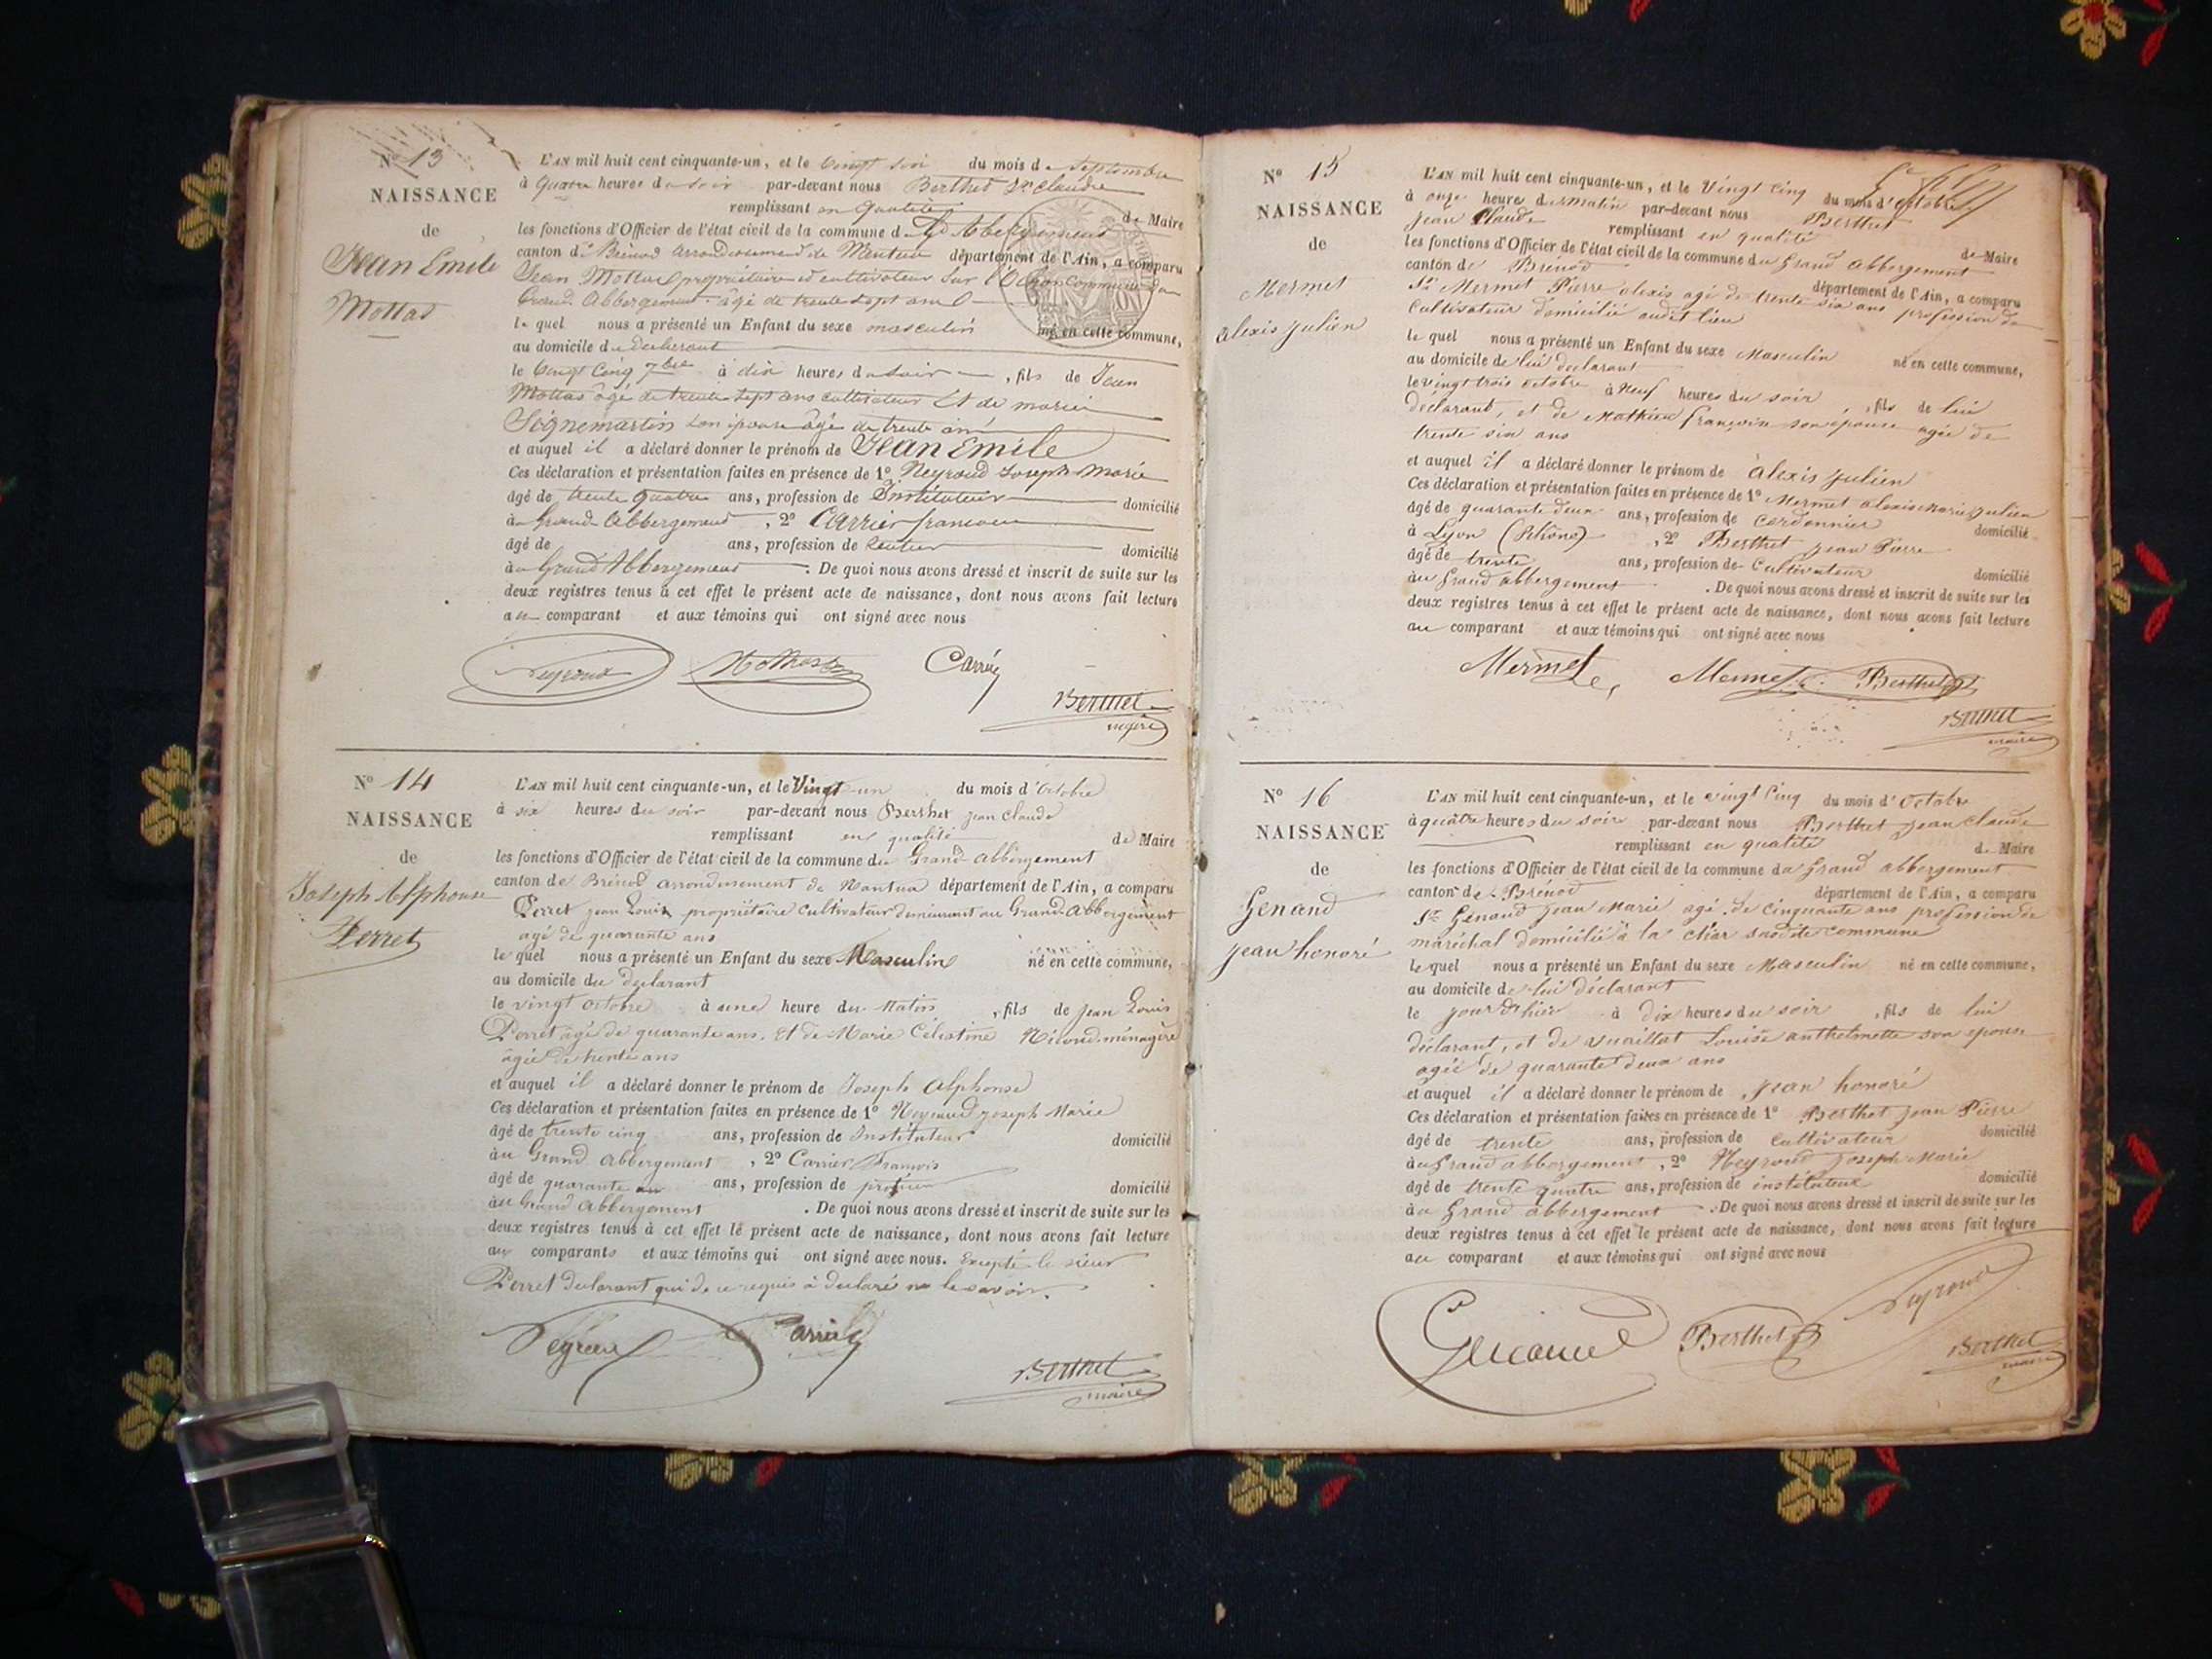 Nº 13
NAISSANCE
de
Jean Emile
Mottas
L'AN mil huit cent cinquante-un, et le vingt six du mois de Septembre
à quatre heures du soir par-devant nous Berthet Jn Claude
remplissant en qualité de Maire
les fonctions d'Officier de l'état civil de la commune d Gd Abbergement
canton de Brénod arrondissement de Nantua département de l'Ain, a comparu
Jean Mottas propriétaire et cultivateur sur commune du
Grand Abbergement âgé de trente sept ans
le quel nous a présenté un Enfant du sexe masculin né en cette commune,
au domicile du declarant
le vingt cinq 7bre à dix heures du soir, fils de Jean
Mottas âgé de trente sept ans cultivateur et de marie
Seignemartin son épouse âgée de trente ans
et auquel il a déclaré donner le prénom de Jean Emile
Ces déclaration et présentation faites en présence de 1º Neyroud Joseph Marie
âgé de trente quatre ans, profession de Instituteur domicilié
à Grand Abbergement, 2º Carrier francois
âgé de ans, profession de domicilié
au Grand Abbergement. De quoi nous avons dressé et inscrit de suite sur les
deux registres tenus à cet effet le présent acte de naissance, dont nous avons fait lecture
au comparant et aux témoins qui ont signé avec nous
Neyroud Mottas Carrier
Berthet
maire
Nº 14
NAISSANCE
de
Joseph Alphonse
Perret
L'AN mil huit cent cinquante-un, et le Vingt un du mois d'octobre
à six heures du soir par-devant nous Berthet jean Claude
remplissant en qualité de Maire
les fonctions d'Officier de l'état civil de la commune du Grand abbergement
canton de Brénod arrondissement de Nantua département de l'Ain, a comparu
Perret jean Louis propriétaire cultivateur demeurant au Grand-Abbergement
agé de quarante ans
le quel nous a présenté un Enfant du sexe Masculin né en cette commune,
au domicile du declarant
le vingt octobre à une heure du Matin, fils de jean Louis
Perret âgé de quarante ans, et de Marie Célestine ménagère
âgée de trente ans
et auquel il a déclaré donner le prénom de Joseph Alphonse
Ces déclaration et présentation faites en présence de 1º Neyroud joseph Marie
âgé de trente cinq ans, profession de Instituteur domicilié
au Grand abbergement, 2º Carrier François
âgé de quarante ans, profession de domicilié
au Grand abbergement. De quoi nous avons dressé et inscrit de suite sur les
deux registres tenus à cet effet le présent acte de naissance, dont nous avons fait lecture
aux comparants et aux témoins qui ont signé avec nous. Excepté le sieur
Perret declarant qui de ce requis à declaré ne le savoir.
Neyroud Carrier
Berthet
maire
Nº 15
NAISSANCE
de
Mermet
alexis julien
L'AN mil huit cent cinquante-un, et le vingt cinq du mois d'octobre
à onze heures du matin par-devant nous Berthet
jean Claude remplissant en qualité de Maire
les fonctions d'Officier de l'état civil de la commune du Grand Abbergement
canton de Brénod département de l'Ain, a comparu
Sr Mermet Pierre alexis agé de trente six ans profession de
cultivateur domicilié audit lieu
le quel nous a présenté un Enfant du sexe Masculin né en cette commune,
au domicile de lui declarant
le vingt trois octobre à Neuf heures du soir, fils de lui
déclarant, et de Mathieu françoise son épouse agée de
trente six ans
et auquel il a déclaré donner le prénom de alexis julien
Ces déclaration et présentation faites en présence de 1º Mermet alexis Marie julien
âgé de quarante deux ans, profession de cordonnier domicilié
à Lyon (Rhône), 2º Berthet jean Pierre
âgé de trente ans, profession de Cultivateur domicilié
au Grand abbergement. De quoi nous avons dressé et inscrit de suite sur les
deux registres tenus à cet effet le présent acte de naissance, dont nous avons fait lecture
au comparant et aux témoins qui ont signé avec nous
Mermet Mermet Berthet
Berthet
maire
Nº 16
NAISSANCE
de
Genand
jean honoré
L'AN mil huit cent cinquante-un, et le vingt cinq du mois d'octobre
à quatre heures du soir par-devant nous Berthet jean Claude
remplissant en qualité de Maire
les fonctions d'Officier de l'état civil de la commune du Grand abbergement
canton de Brénod département de l'Ain, a comparu
Sr Genand jean Marie agé de cinquante ans profession de
maréchal domicilié à la susdite commune
le quel nous a présenté un Enfant du sexe Masculin né en cette commune,
au domicile de lui déclarant
le jour d'hier à dix heures du soir, fils de lui
déclarant, et de Louise anthelmette son epouse
agée de quarante deux ans
et auquel il a déclaré donner le prénom de jean honoré
Ces déclaration et présentation faites en présence de 1º Berthet jean Pierre
âgé de trente ans, profession de cultivateur domicilié
au Grand abbergement, 2º Neyroud joseph Marie
âgé de trente quatre ans, profession de instituteur domicilié
au Grand abbergement. De quoi nous avons dressé et inscrit de suite sur les
deux registres tenus à cet effet le présent acte de naissance, dont nous avons fait lecture
au comparant et aux témoins qui ont signé avec nous
Genand Berthet Neyroud
Berthet
maire